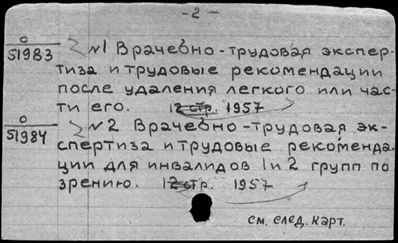 - 2 -
О
51983 №1 Врачебно-трудовая экспер-
тиза и трудовые рекомендации
после удаления легкого или час-
ти его. 12 стр. 1957
О
51984 №2 Врачебно-трудовая эк-
спертиза и трудовые рекоменда-
ции для инвалидов 1 и 2 групп по
зрению. 12 стр. 1957
см. след. карт.